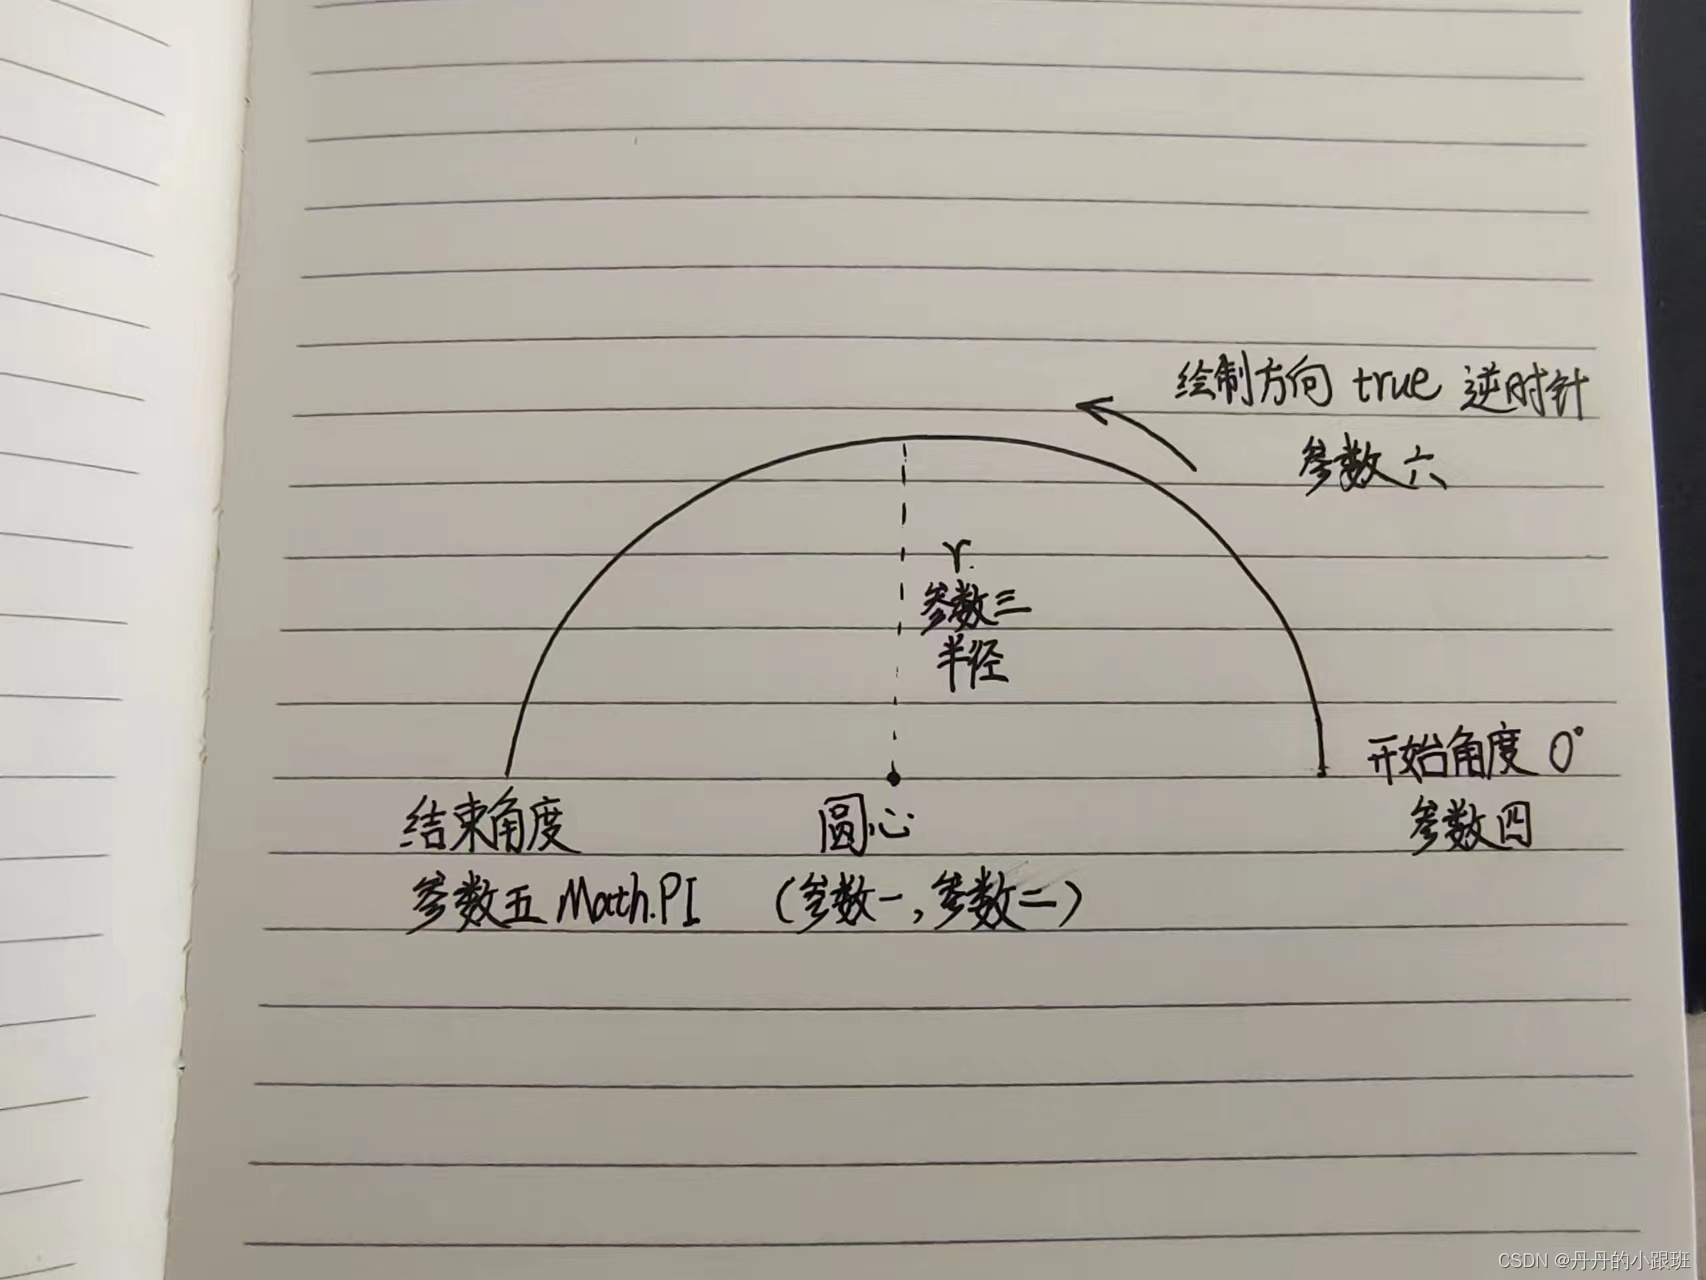 绘制方向 true 逆时针
参数六
r
参数三
半径
开始角度 0°
参数四
结束角度
参数五 Math.PI
圆心
(参数一,参数二)
CSDN @丹丹的小跟班